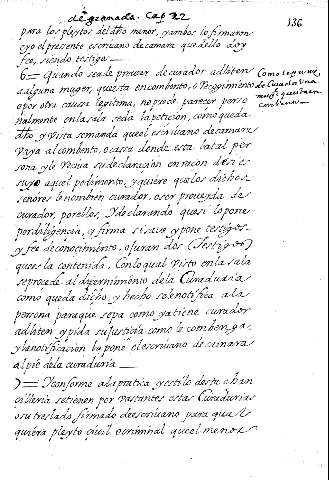 de granada. Cap 22
136
para los pleytos del dho menor, y ambos lo firmaron
eyo el presente escriuano de camara que dello doy
fee, siendo testigos
6 = Quando se ha de proueer de curador adliten
a alguna muger, questa en combento, o Recogimiento
o por otra causa legitima, no puede parecer perso
nalmente en la sala se da la peticion, como queda
dho y vista se manda que el escriuano de camara
vaya al combento, o casa donde esta la tal per
sona y le Reciua su declaracion en racon de si es
suyo aquel pedimento, y quiere que los dichos
señores le nombren curador, o ser proueyda de
curador, por ellos, Y declarando que si lo pone
por diligencia, y firma si saue y pone testigos
y fee de conocimiento, o juran dos (Testigos)
que es la contenida. Con lo qual visto en la sala
se procede al dicernimiento de la Curaduria
como queda dicho, y hecho se le notifica a la
persona para que sepa como ya tiene curador
adliten y pida su justicia como le combenga,
y la notificacion la pone el escriuano de camara
al pie de la curaduria
7 = Y conforme a la pratica, y estilo desta chan
cilleria se tienen por vastantes estas Curadurias
o su treslado, firmado de escriuano para que
quiera pleyto ciuil o criminal que el menor
Como
de Curador Una
muger que esta en
combento